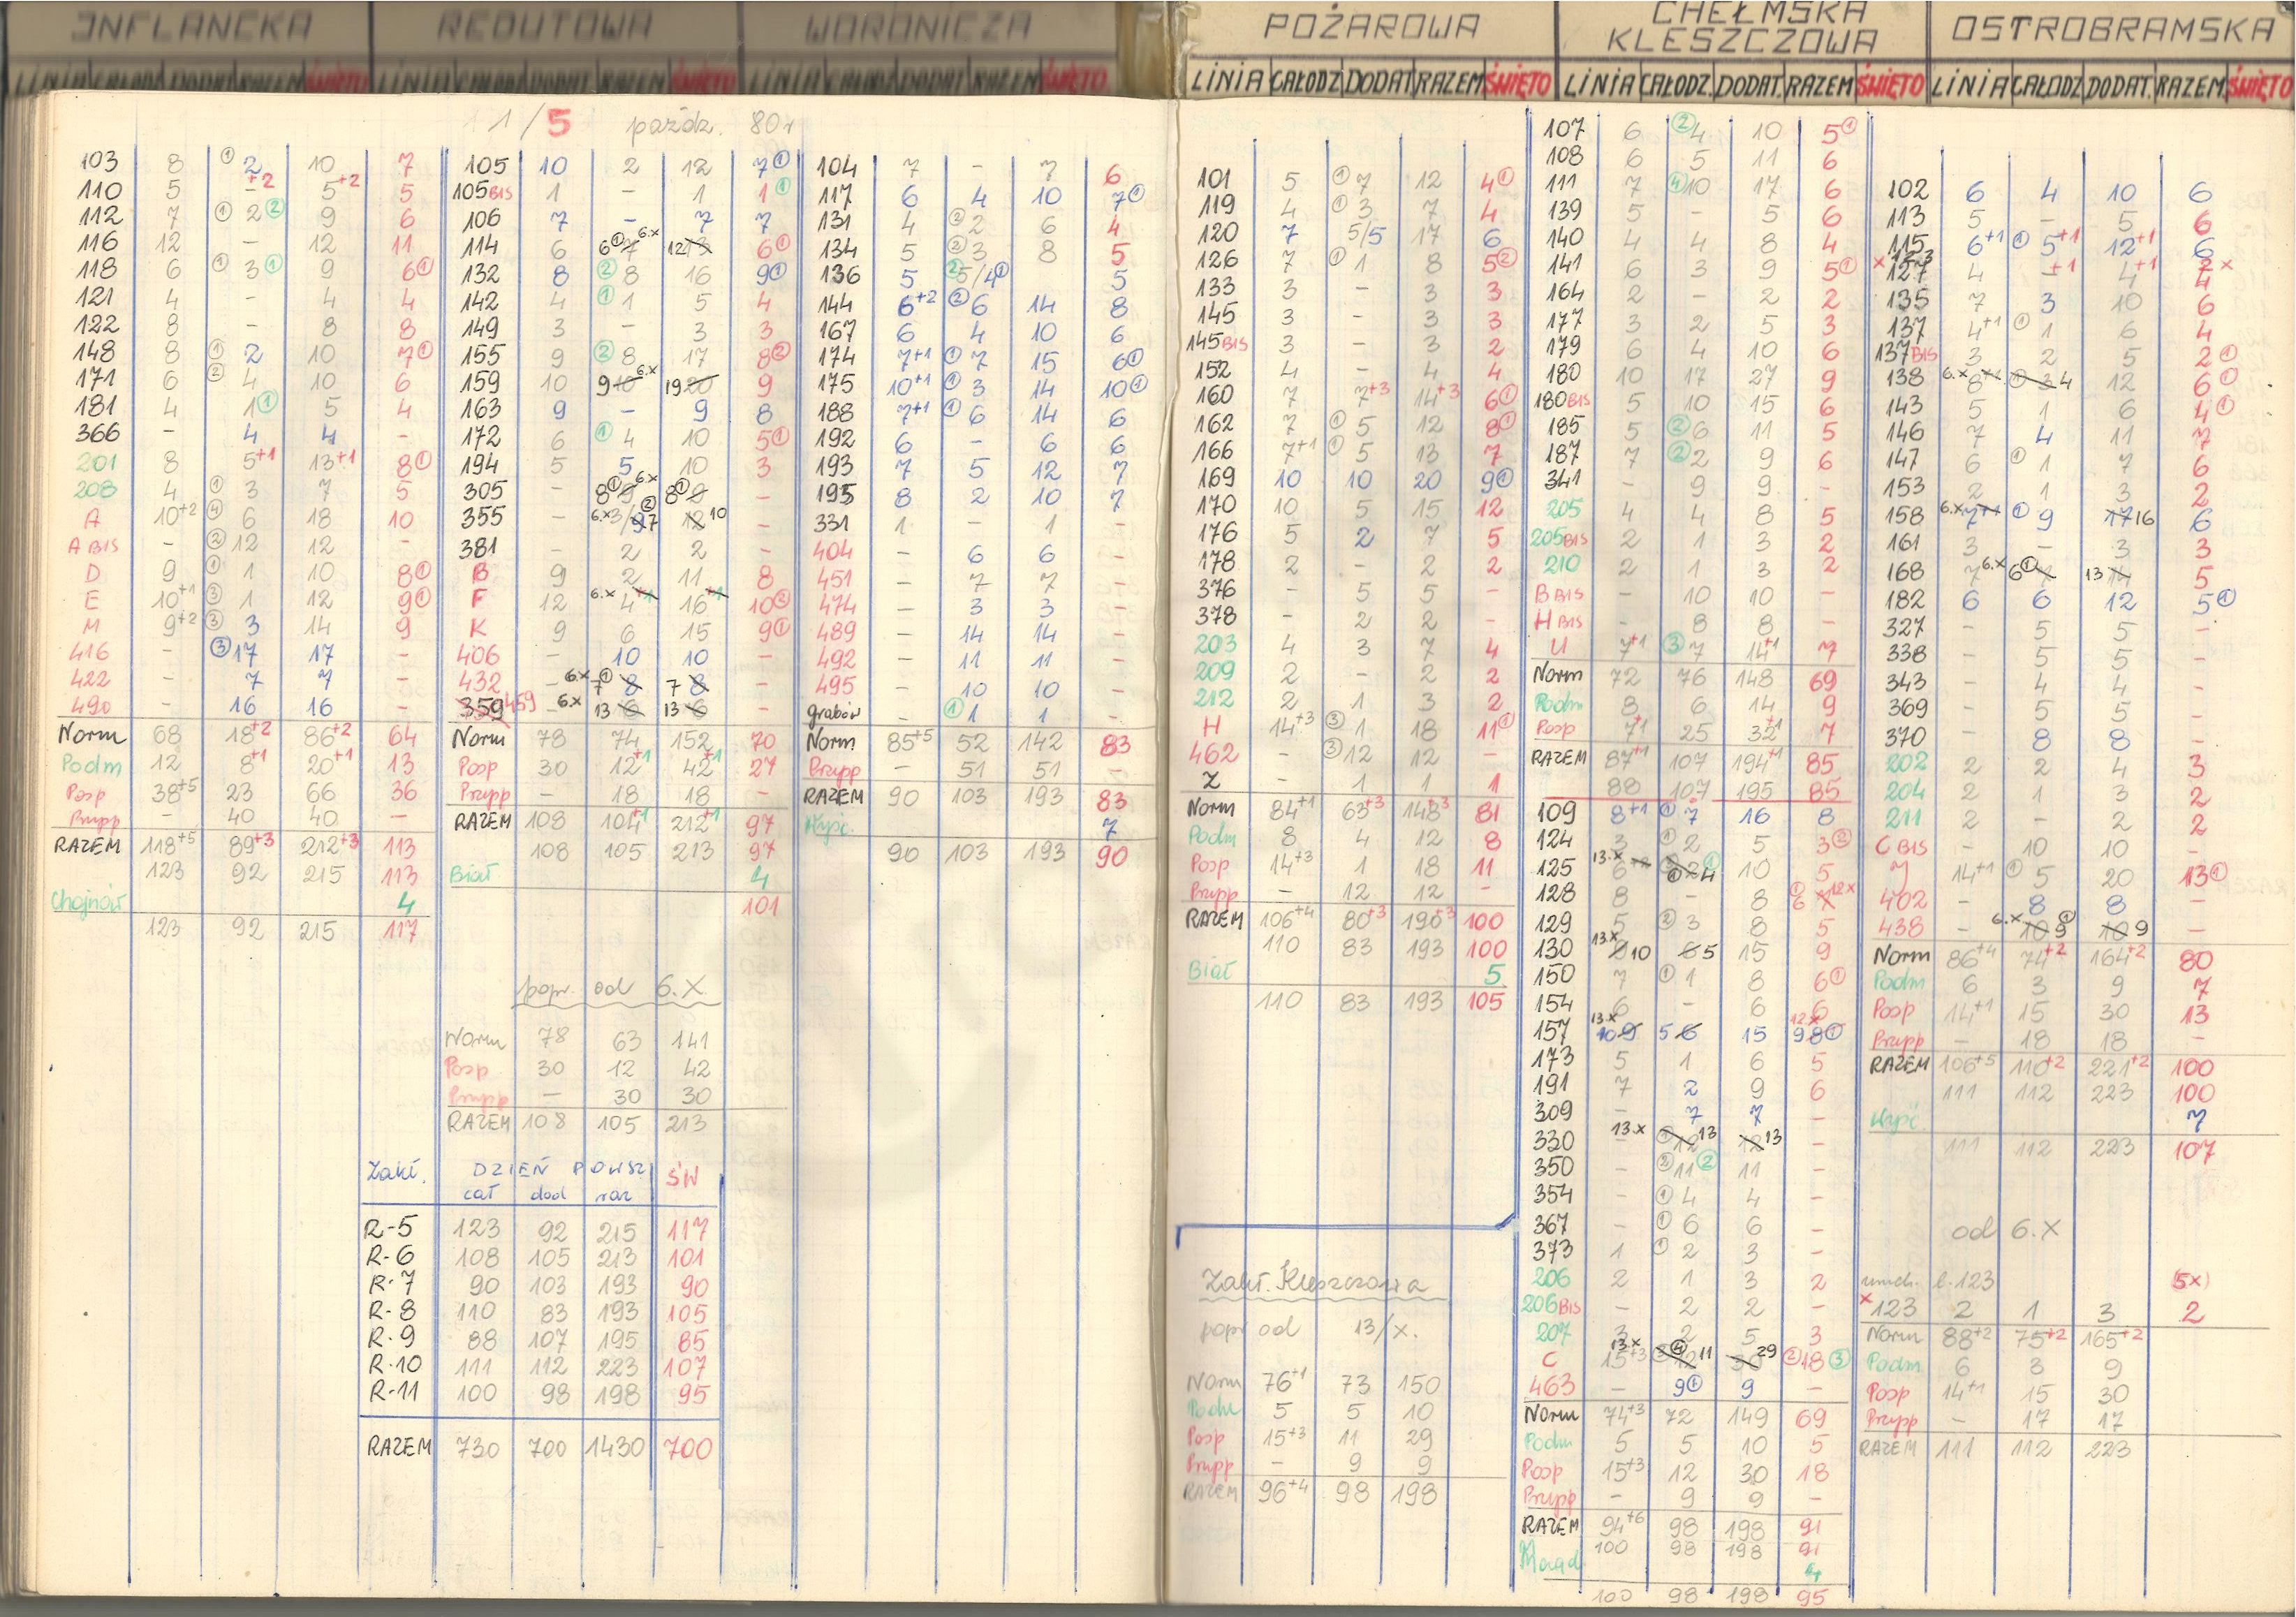 INFLANCKA
LINIA CAŁODZ DODAT RAZEM ŚWIĘTO
103 8 ① 2 10 7
110 5 -+2 5+2 5
112 7 ① 2 ② 9 6
116 12 - 12 11
118 6 ① 3 ① 9 6①
121 4 - 4 4
122 8 - 8 8
148 8 ① 2 10 7①
171 6 ② 4 10 6
181 4 1① 5 4
366 - 4 4 -
201 8 5+1 13+1 8①
208 4 ① 3 7 5
A 10+2 ④ 6 18 10
A BIS - ② 12 12 -
D 9 ① 1 10 8①
E 10+1 ③ 1 12 9①
M 9+2 ③ 3 14 9
416 - ③ 17 17 -
422 - 7 7 -
490 - 16 16 -
Norm 68 18+2 86+2 64
Podm 12 8+1 20+1 13
Posp 38+5 23 66 36
Przpp - 40 40 -
RAZEM 118+5 89+3 212+3 113
123 92 215 113
Chojnów 4
123 92 215 117
REDUTOWA
LINIA CAŁODZ DODAT RAZEM ŚWIĘTO
1/5 paźdz. 80r
105 10 2 12 7①
105 BIS 1 - 1 1①
106 7 - 7 7
114 6 6① 7 6.x 12 13 6①
132 8 ② 8 16 9①
142 4 ① 1 5 4
149 3 - 3 3
155 9 ② 8 17 8②
159 10 9 10 6.x 19 20 9
163 9 - 9 8
172 6 ① 4 10 5①
194 5 5 10 3
305 - 8① 9 6.x 8① 9 -
355 - 6.x 3/9 7 ② 12 10 -
381 - 2 2 -
B 9 2 11 8
F 12 6.x 4+1 16+1 10②
K 9 6 15 9①
406 - 10 10 -
432 - 6.x 7① 8 7 8 -
359 459 6.x 13 6 13 6 -
Norm 78 74 152 70
Posp 30 12+1 42+1 27
Przpp - 18 18 -
RAZEM 108 104+1 212+1 97
108 105 213 97
Biał 4
101
popr. od 6.X
Norm 78 63 141
Posp 30 12 42
Przpp - 30 30
RAZEM 108 105 213
Zakł. DZIEŃ POWSZ ŚW
cał dod raz
R-5 123 92 215 117
R-6 108 105 213 101
R-7 90 103 193 90
R-8 110 83 193 105
R-9 88 107 195 85
R-10 111 112 223 107
R-11 100 98 198 95
RAZEM 730 700 1430 700
WORONICZA
LINIA CAŁODZ DODAT RAZEM ŚWIĘTO
104 7 - 7 6
117 6 4 10 7①
131 4 ② 2 6 4
134 5 ② 3 8 5
136 5 ② 5/4① 5
144 6+2 ② 6 14 8
167 6 4 10 6
174 7+1 ① 7 15 6①
175 10+1 ① 3 14 10①
188 7+1 ① 6 14 6
192 6 - 6 6
193 7 5 12 7
195 8 2 10 7
331 1 - 1 -
404 - 6 6 -
451 - 7 7 -
474 - 3 3 -
489 - 14 14 -
492 - 11 11 -
495 - 10 10 -
grabów - ① 1 1 -
Norm 85+5 52 142 83
Przpp - 51 51 -
RAZEM 90 103 193 83
Wyśc. 7
90 103 193 90
POŻAROWA
LINIA CAŁODZ DODAT RAZEM ŚWIĘTO
101 5 ① 7 12 4①
119 4 ① 3 7 4
120 7 5/5 17 6
126 7 ① 1 8 5②
133 3 - 3 3
145 3 - 3 3
145 BIS 3 - 3 2
152 4 - 4 4
160 7 7+3 14+3 6①
162 7 ① 5 12 8①
166 7+1 ① 5 13 7
169 10 10 20 9①
170 10 5 15 12
176 5 2 7 5
178 2 - 2 2
376 - 5 5 -
378 - 2 2 -
203 4 3 7 4
209 2 - 2 2
212 2 1 3 2
H 14+3 ③ 1 18 11①
462 - ③ 12 12 -
Z - 1 1 1
Norm 84+1 63+3 148+3 81
Podm 8 4 12 8
Posp 14+3 1 18 11
Przpp - 12 12 -
RAZEM 106+4 80+3 190+3 100
110 83 193 100
Biał 5
110 83 193 105
Zakł. Kleszczowa
popr od 13/x.
Norm 76+1 73 150
Podm 5 5 10
Posp 15+3 11 29
Przpp - 9 9
RAZEM 96+4 98 198
CHEŁMSKA
KLESZCZOWA
LINIA CAŁODZ. DODAT. RAZEM ŚWIĘTO
107 6 ② 4 10 5①
108 6 5 11 6
111 7 ④ 10 17 6
139 5 - 5 6
140 4 4 8 4
141 6 3 9 5①
164 2 - 2 2
177 3 2 5 3
179 6 4 10 6
180 10 17 27 9
180 BIS 5 10 15 6
185 5 ② 6 11 5
187 7 ② 2 9 6
341 - 9 9 -
205 4 4 8 5
205 BIS 2 1 3 2
210 2 1 3 2
B BIS - 10 10 -
H BIS - 8 8 -
U 7+1 ③ 7 14+1 7
Norm 72 76 148 69
Podm 8 6 14 9
Posp 7+1 25 32+1 7
RAZEM 87+1 107 194+1 85
88 107 195 85
109 8+1 ① 7 16 8
124 3 ① 2 5 3②
125 13.x 6 ① 4 ① 10 5
128 8 - 8 ① 6 12x
129 5 ② 3 8 5
130 13.x 9 10 6 5 15 9
150 7 ① 1 8 6①
154 6 - 6 6
157 13.x 10 9 5 6 15 12x 9 8①
173 5 1 6 5
191 7 2 9 6
309 - 7 7 -
330 - 13.x ① 12 13 12 13 -
350 - ② 11 ② 11 -
354 - ① 4 4 -
367 - ① 6 6 -
373 1 ① 2 3 -
206 2 1 3 2
206 BIS - 2 2 -
207 3 2 5 3
C 13x 15+3 ④ 12 11 30 29 ② 18 ③
463 - 9① 9 -
Norm 74+3 72 149 69
Podm 5 5 10 5
Posp 15+3 12 30 18
Przpp - 9 9 -
RAZEM 94+6 98 198 91
100 98 198 91
4
100 98 198 95
OSTROBRAMSKA
LINIA CAŁODZ DODAT. RAZEM. ŚWIĘTO
102 6 4 10 6
113 5 - 5 6
115 6+1 ① 5+1 12+1 6
x 123 2 x
127 4 -+1 4+1 4
135 7 3 10 6
137 4+1 ① 1 6 4
137 BIS 3 2 5 2①
138 6.x 8+1 ① 3 4 12 6①
143 5 1 6 4①
146 7 4 11 7
147 6 ① 1 7 6
153 2 1 3 2
158 6.x 7+1 ① 9 17 16 6
161 3 - 3 3
168 7 6.x 6① 7 13 14 5
182 6 6 12 5①
327 - 5 5 -
338 - 5 5 -
343 - 4 4 -
369 - 5 5 -
370 - 8 8 -
202 2 2 4 3
204 2 1 3 2
211 2 - 2 2
C BIS - 10 10 -
Y 14+1 ① 5 20 13①
402 - 8 8 -
438 - 6.x 10 9① 10 9 -
Norm 86+4 74+2 164+2 80
Podm 6 3 9 7
Posp 14+1 15 30 13
Przpp - 18 18 -
RAZEM 106+5 110+2 221+2 100
111 112 223 100
Wyśc. 7
111 112 223 107
od 6.X
uruch. l.123 (5x)
x 123 2 1 3 2
Norm 88+2 75+2 165+2
Podm 6 3 9
Posp 14+1 15 30
Przpp - 17 17
RAZEM 111 112 223